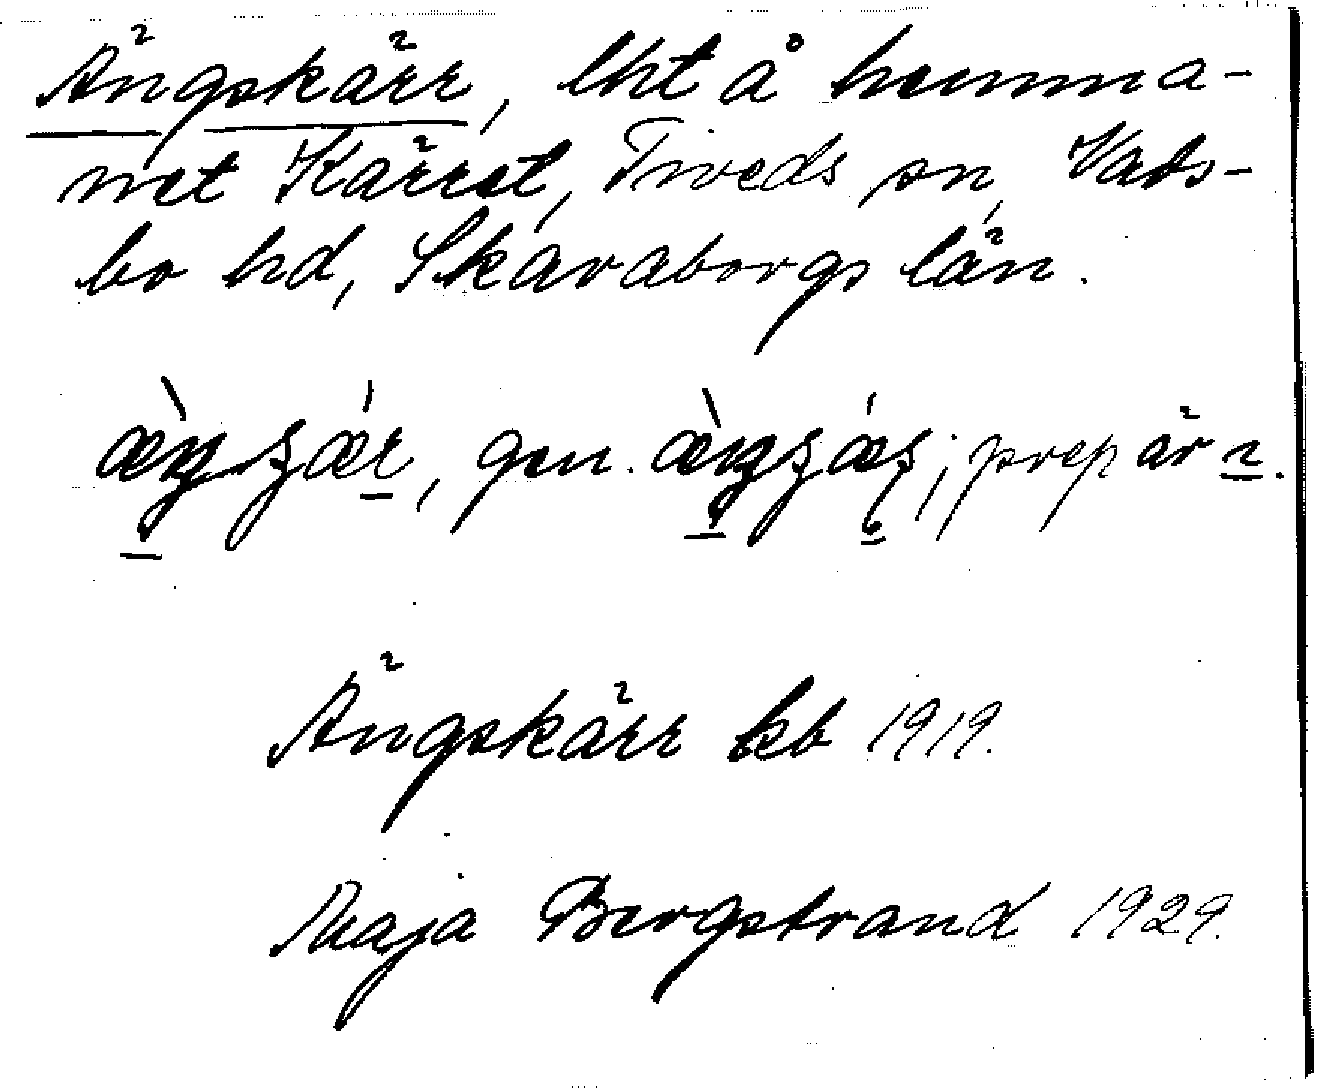 Ängskärr, lht å hemma-
net Kärret, Tiveds sn, Vads-
bo hd, Skaraborgs län.
gen. prep är i.
Ängskärr kb 1919.
Maja Bergstrand 1929.